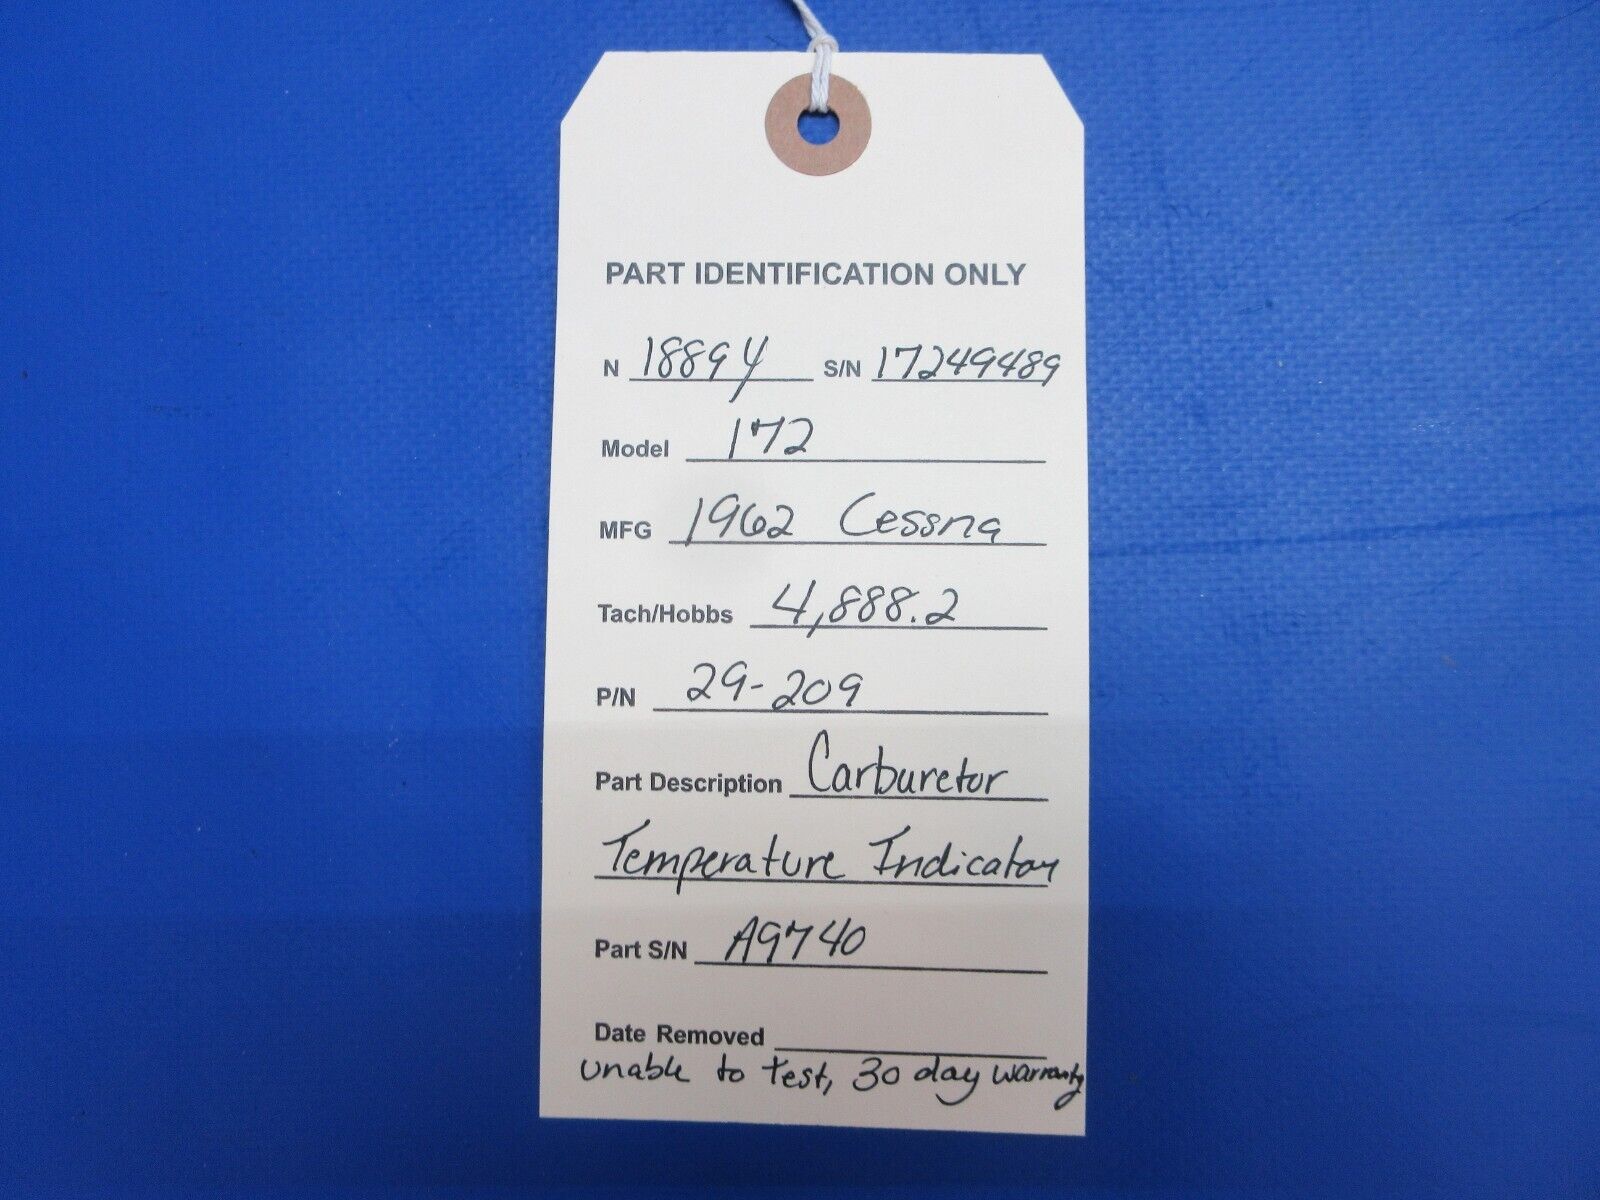 PART IDENTIFICATION ONLY
N 1889Y S/N 17249489
Model 172
MFG 1962 Cessna
Tach/Hobbs 4,888.2
P/N 29-209
Part Description Carburetor
Temperature Indicator
Part S/N A9740
Date Removed
unable to test, 30 day warranty